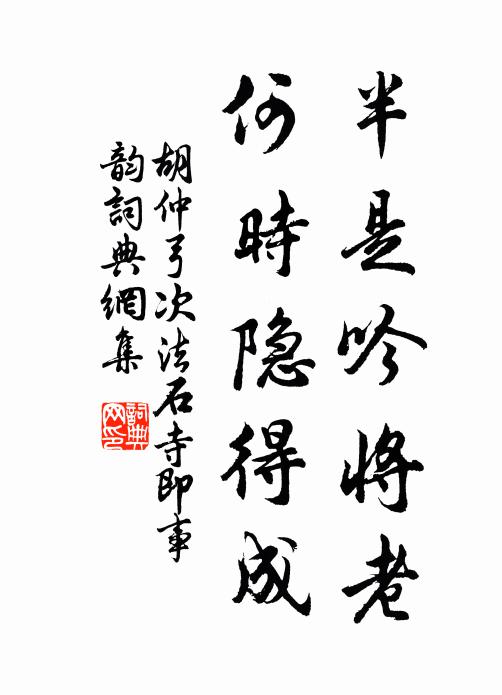 半是吟將老
何時隐得成
胡仲弓次法石寺即事
韵詞典網集
詞典
网印